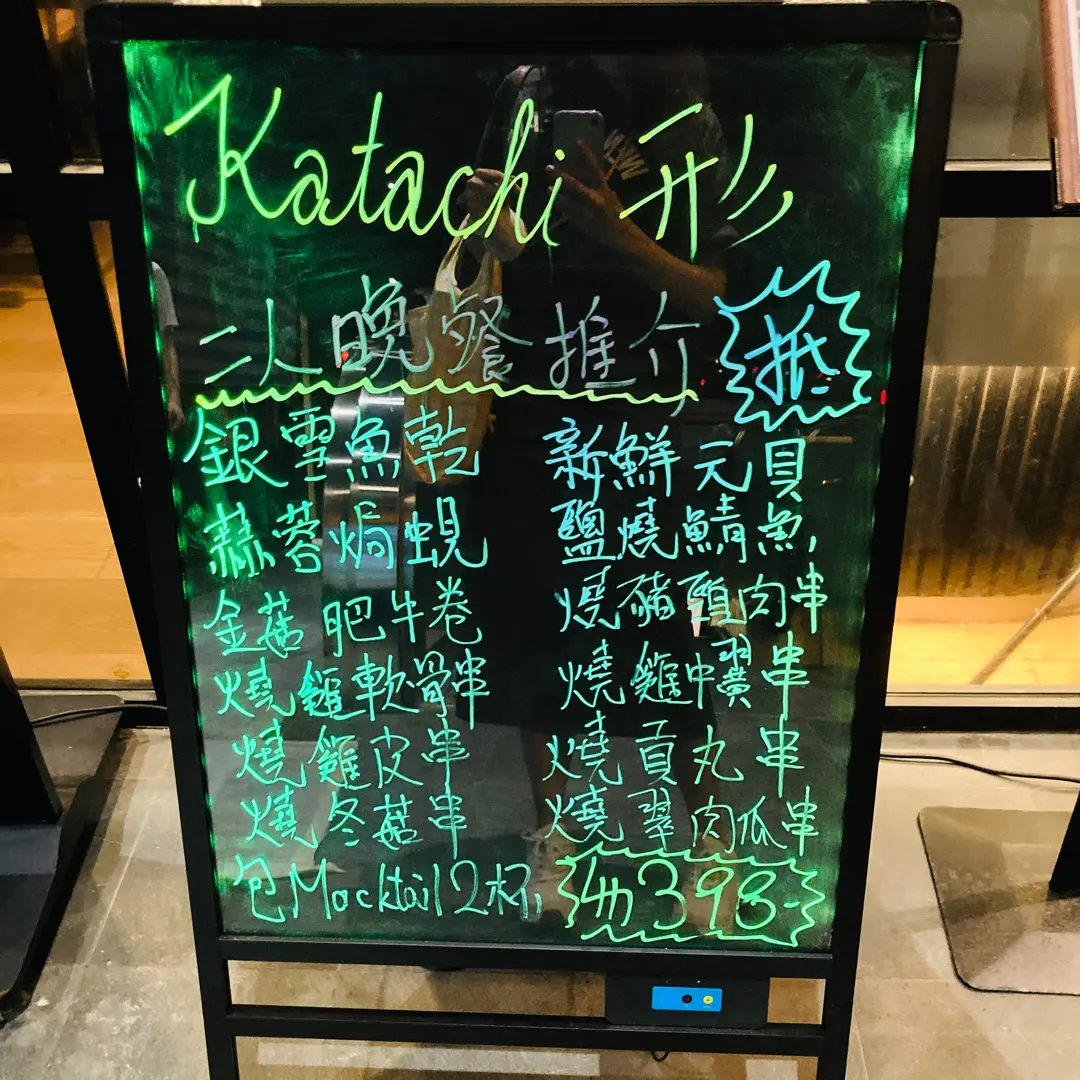 Katachi 形
二人晚餐推介 抵
銀雪魚乾 新鮮元貝
蒜蓉焗蜆 鹽燒鯖魚
金菇肥牛卷 燒豬頸肉串
燒雞軟骨串 燒雞中翼串
燒雞皮串 燒貢丸串
燒冬菇串 燒翠肉瓜串
包Mocktail 2杯 $398